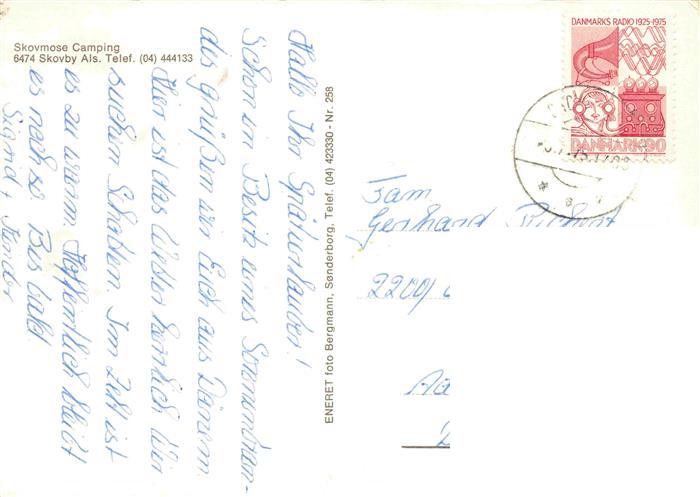 Skovmose Camping
6474 Skovby Als. Telef. (04) 444133
Hallo Ihr Späturlauber!
Schon im Besitz eines Sonnenbran-
des grüßen wir Euch aus Dänem.
Hier ist das Wetter herrlich. Wir
suchen Schatten. Im Zelt ist
es zu warm. Hoffentlich bleibt
es noch so. Bis bald
Sigrid +
ENERET foto Bergmann, Sønderborg, Telef. (04) 423330 - Nr. 258
DANMARKS RADIO 1925-1975
DANMARK 90
Fam
Gerhard
2200